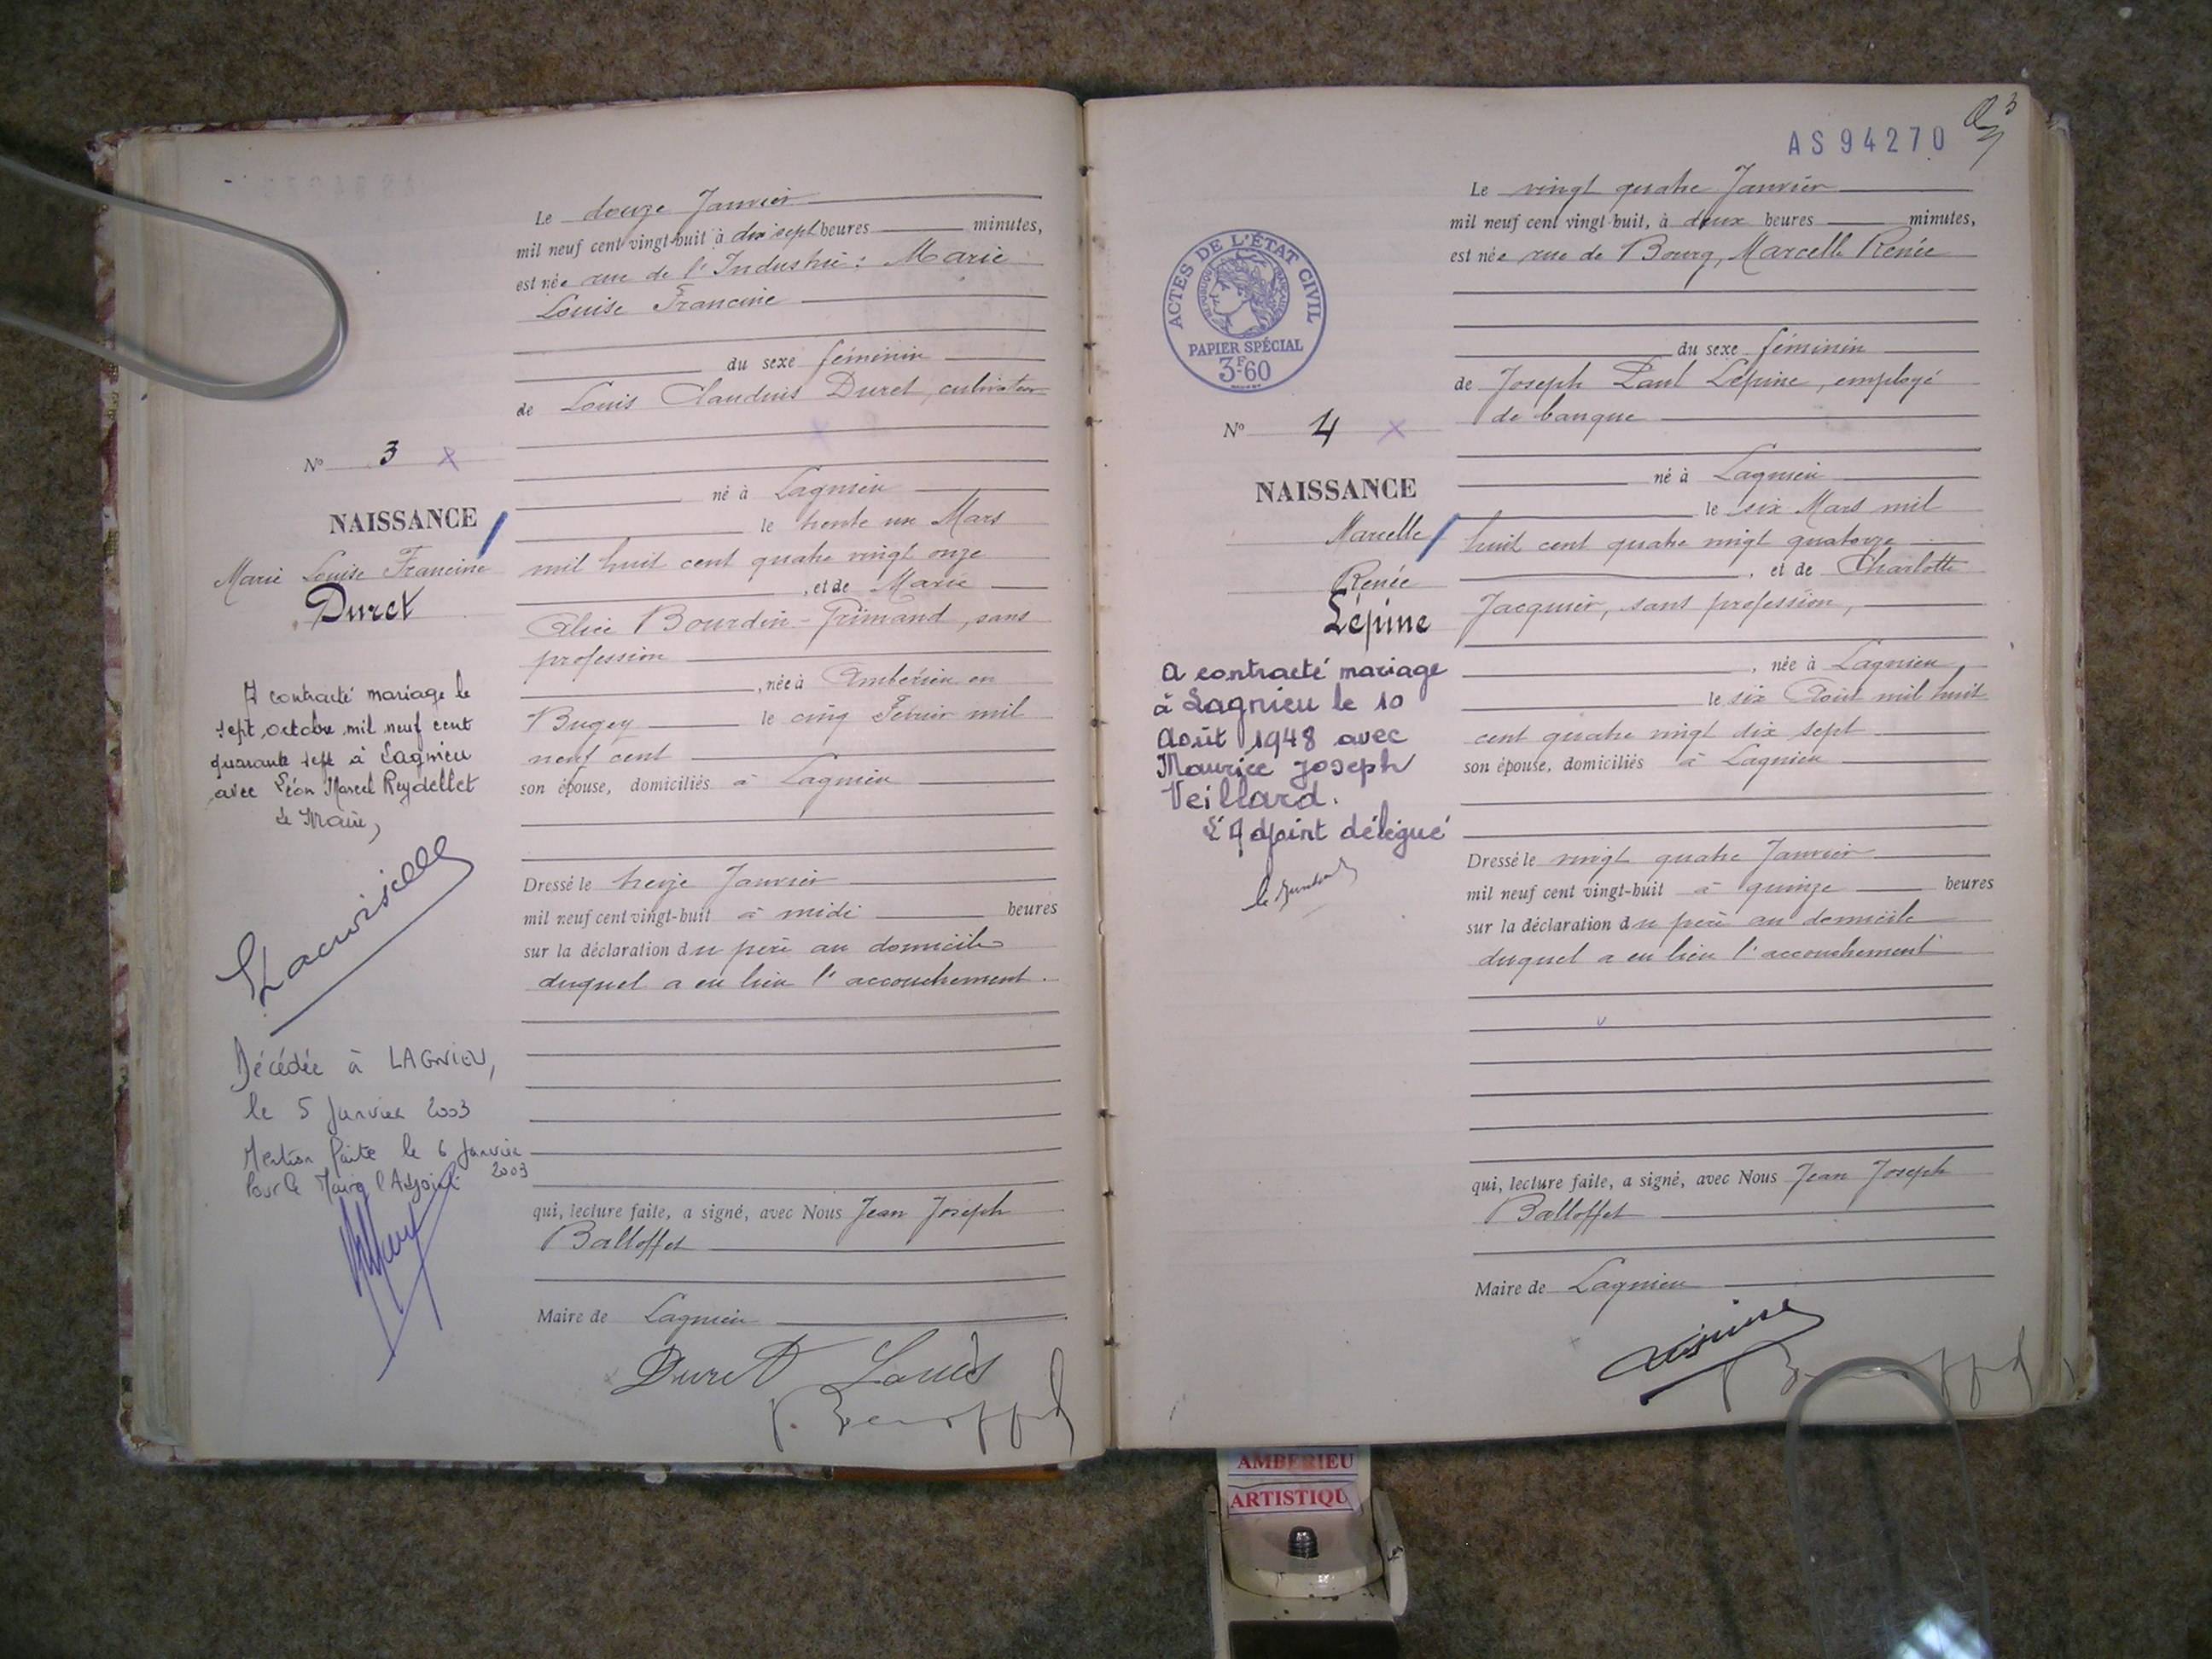 Le douze Janvier
mil neuf cent vingt-huit à dix sept heures minutes,
est née rue de l'Industrie : Marie
Louise Francine
du sexe féminin
de Louis Claudius Duret, cultivateur
N° 3
né à Lagnieu
NAISSANCE
le trente un Mars
Marie Louise Francine
Duret
mil huit cent quatre vingt onze
, et de Marie
Alice Bourdin-Grimand, sans
profession
, née à Ambérieu en
Bugey le cinq Février mil
neuf cent
son épouse, domiciliés à Lagnieu
A contracté mariage le
sept octobre mil neuf cent
quarante sept à Lagnieu
avec Léon Marcel Reydellet
Le Maire,
Dressé le treize Janvier
mil neuf cent vingt-huit à midi heures
sur la déclaration du père au domicile
duquel a eu lieu l'accouchement.
Décédée à LAGNIEU,
le 5 Janvier 2003
Mention faite le 6 Janvier
2003
Pour le Maire l'Adjoint
qui, lecture faite, a signé, avec Nous Jean Joseph
Balloffet
Maire de Lagnieu
Duret Louis
AS 94270
3
Le vingt quatre Janvier
mil neuf cent vingt-huit, à deux heures minutes,
est née rue de Bourg, Marcelle Renée
ACTES DE L'ÉTAT CIVIL
RÉPUBLIQUE FRANÇAISE
PAPIER SPÉCIAL
3F.60
du sexe féminin
de Joseph Paul Lépine, employé
de banque
N° 4
né à Lagnieu
NAISSANCE
le six Mars mil
Marcelle
Renée
Lépine
huit cent quatre vingt quatorze
, et de Charlotte
Jacquier, sans profession,
, née à Lagnieu
le six Août mil huit
cent quatre vingt dix sept
son épouse, domiciliés à Lagnieu
A contracté mariage
à Lagnieu le 10
Août 1948 avec
Maurice Joseph
Veillard.
L'Adjoint délégué
Dressé le vingt quatre Janvier
mil neuf cent vingt-huit à quinze heures
sur la déclaration du père au domicile
duquel a eu lieu l'accouchement
qui, lecture faite, a signé, avec Nous Jean Joseph
Balloffet
Maire de Lagnieu
Lépine
AMBERIEU
ARTISTIQU